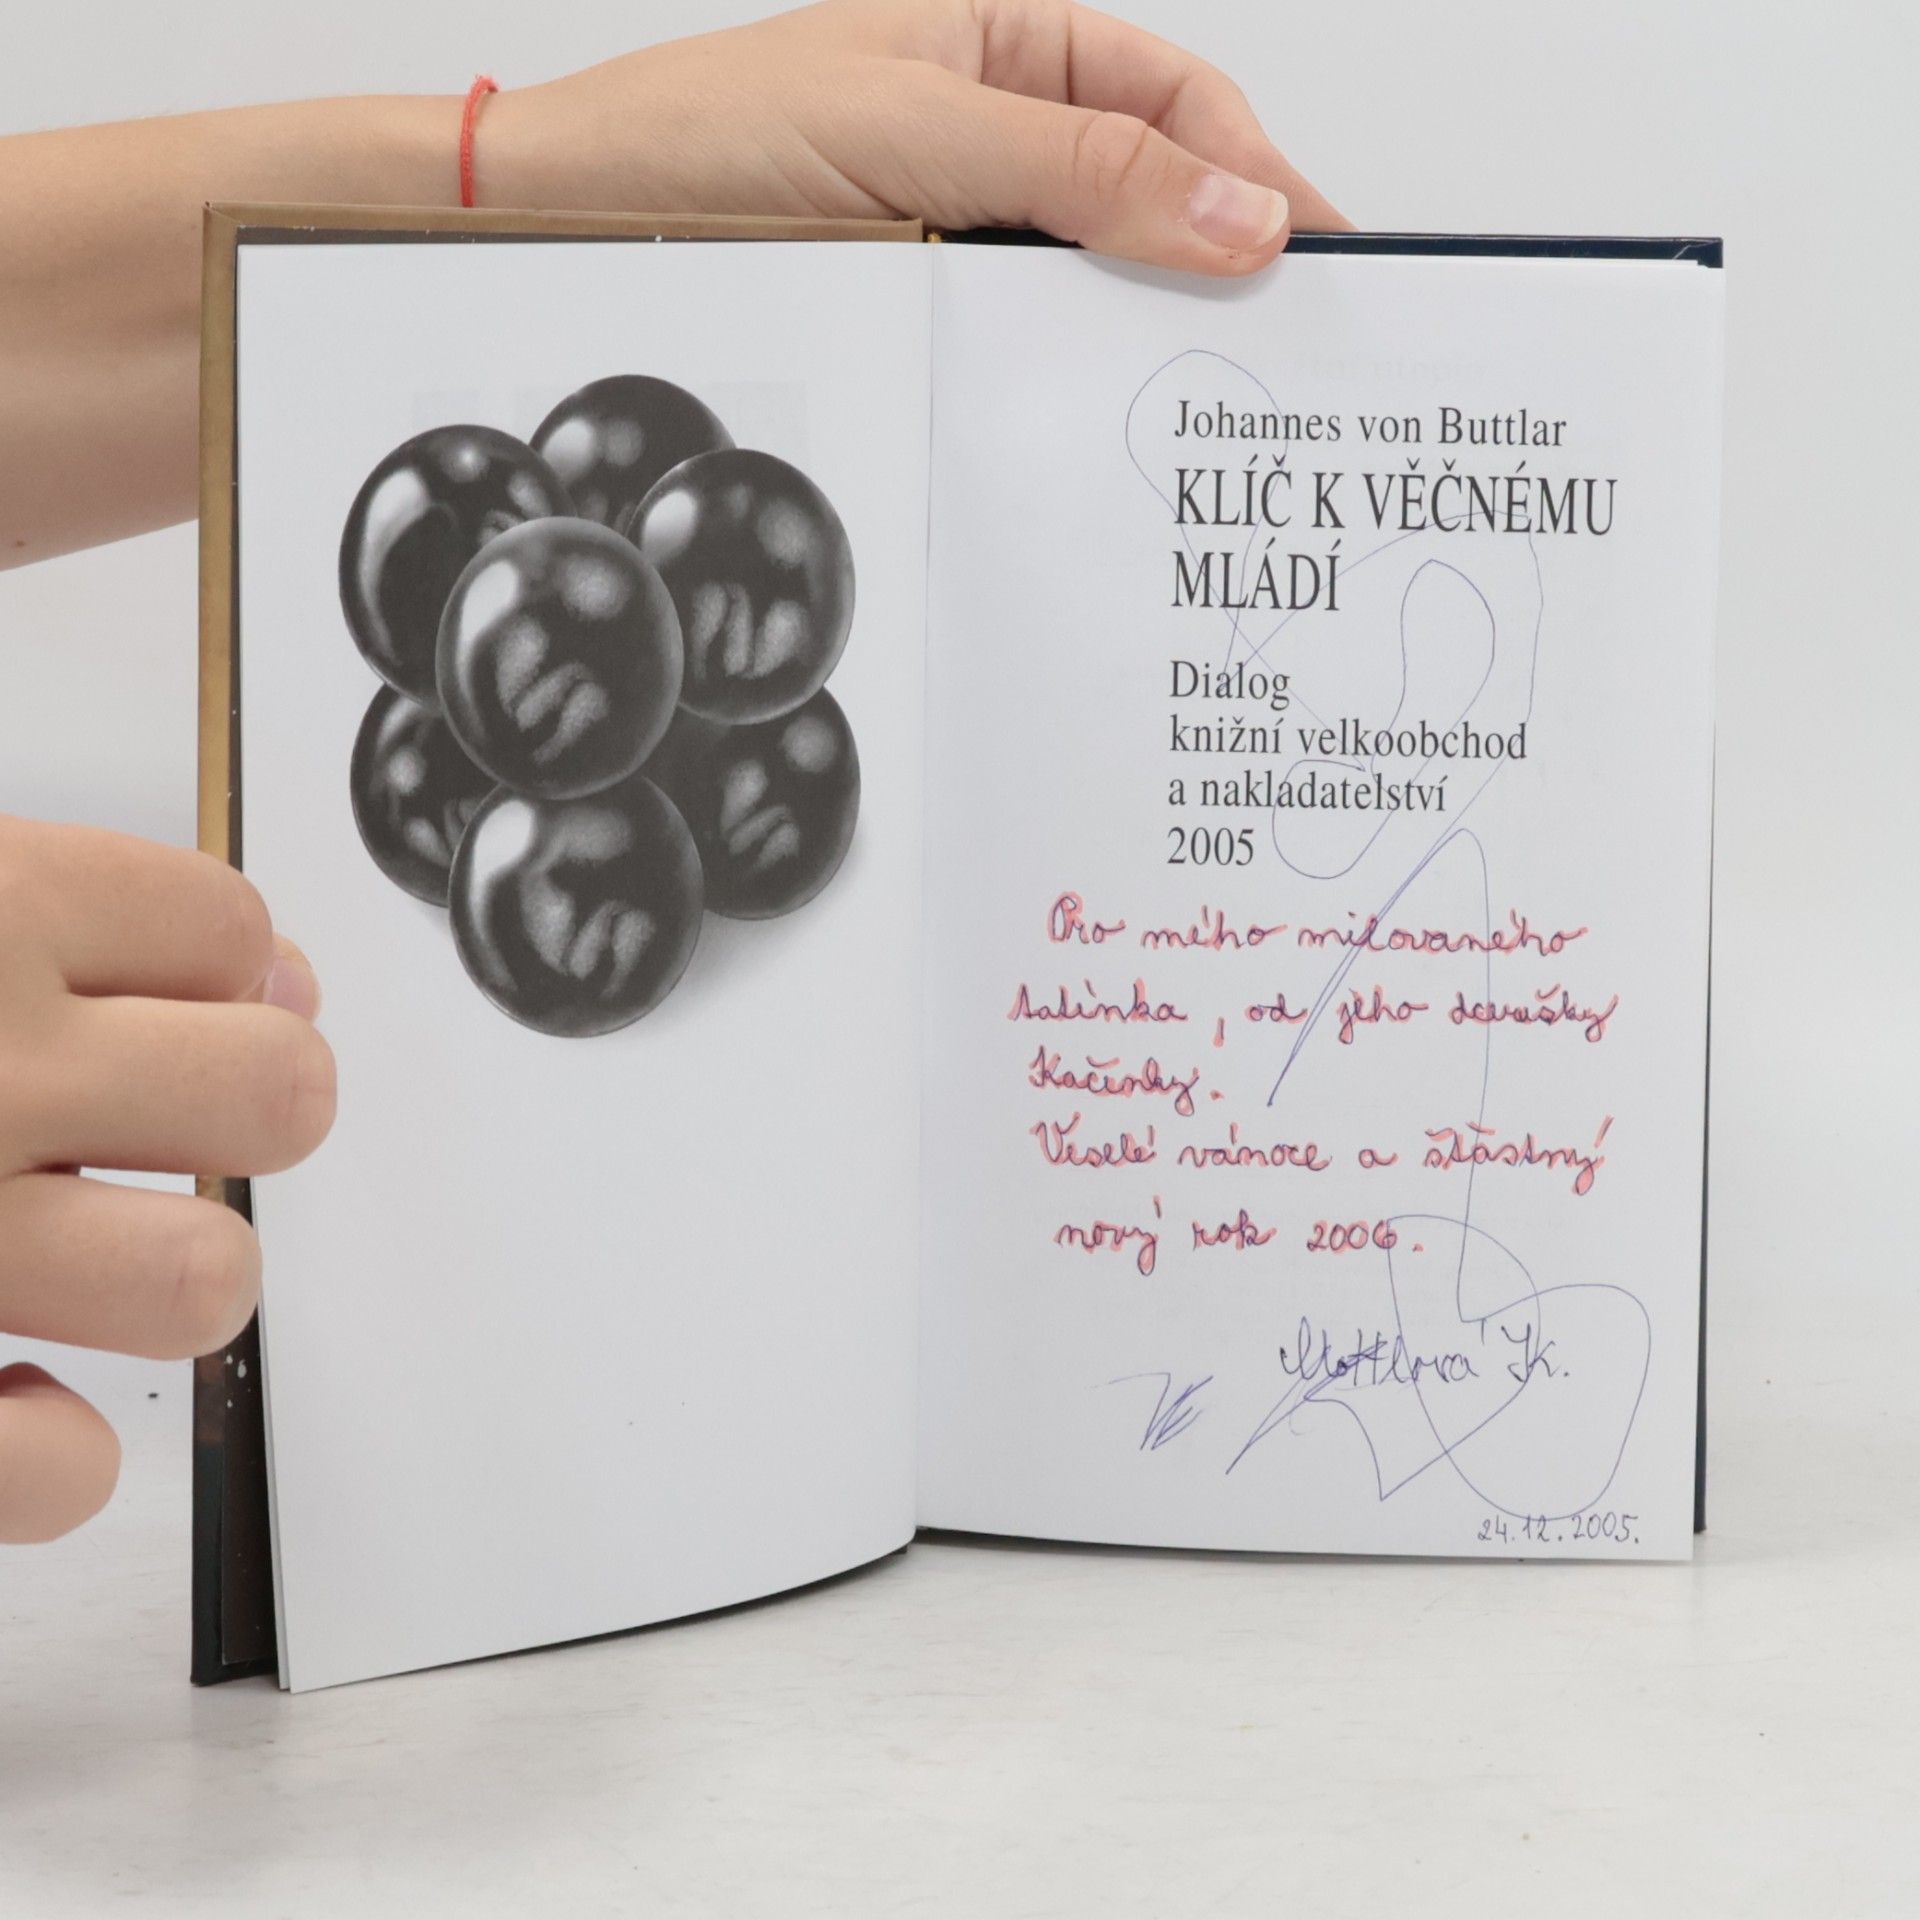 Johannes von Buttlar
KLÍČ K VĚČNÉMU
MLÁDÍ
Dialog
knižní velkoobchod
a nakladatelství
2005
Pro mého milovaného
tatínka, od jeho dcerušky
Kačenky.
Veselé vánoce a šťastný
nový rok 2006.
Mottlová K.
24.12.2005.